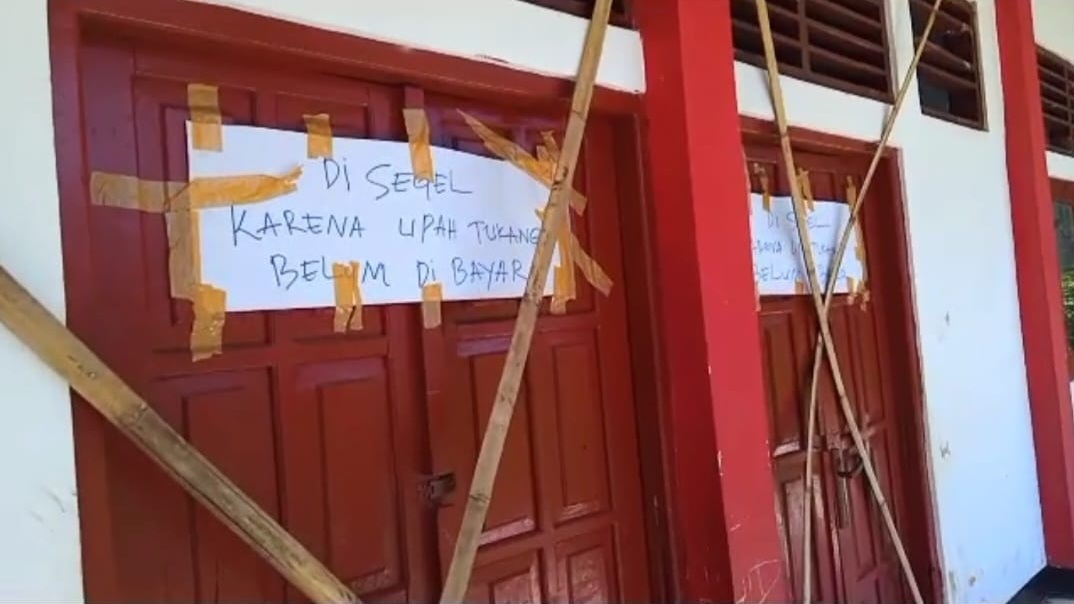 Di SEGEL
KARENA UPAH TUKANG
BELUM Di BAYAR
Di
BELUM